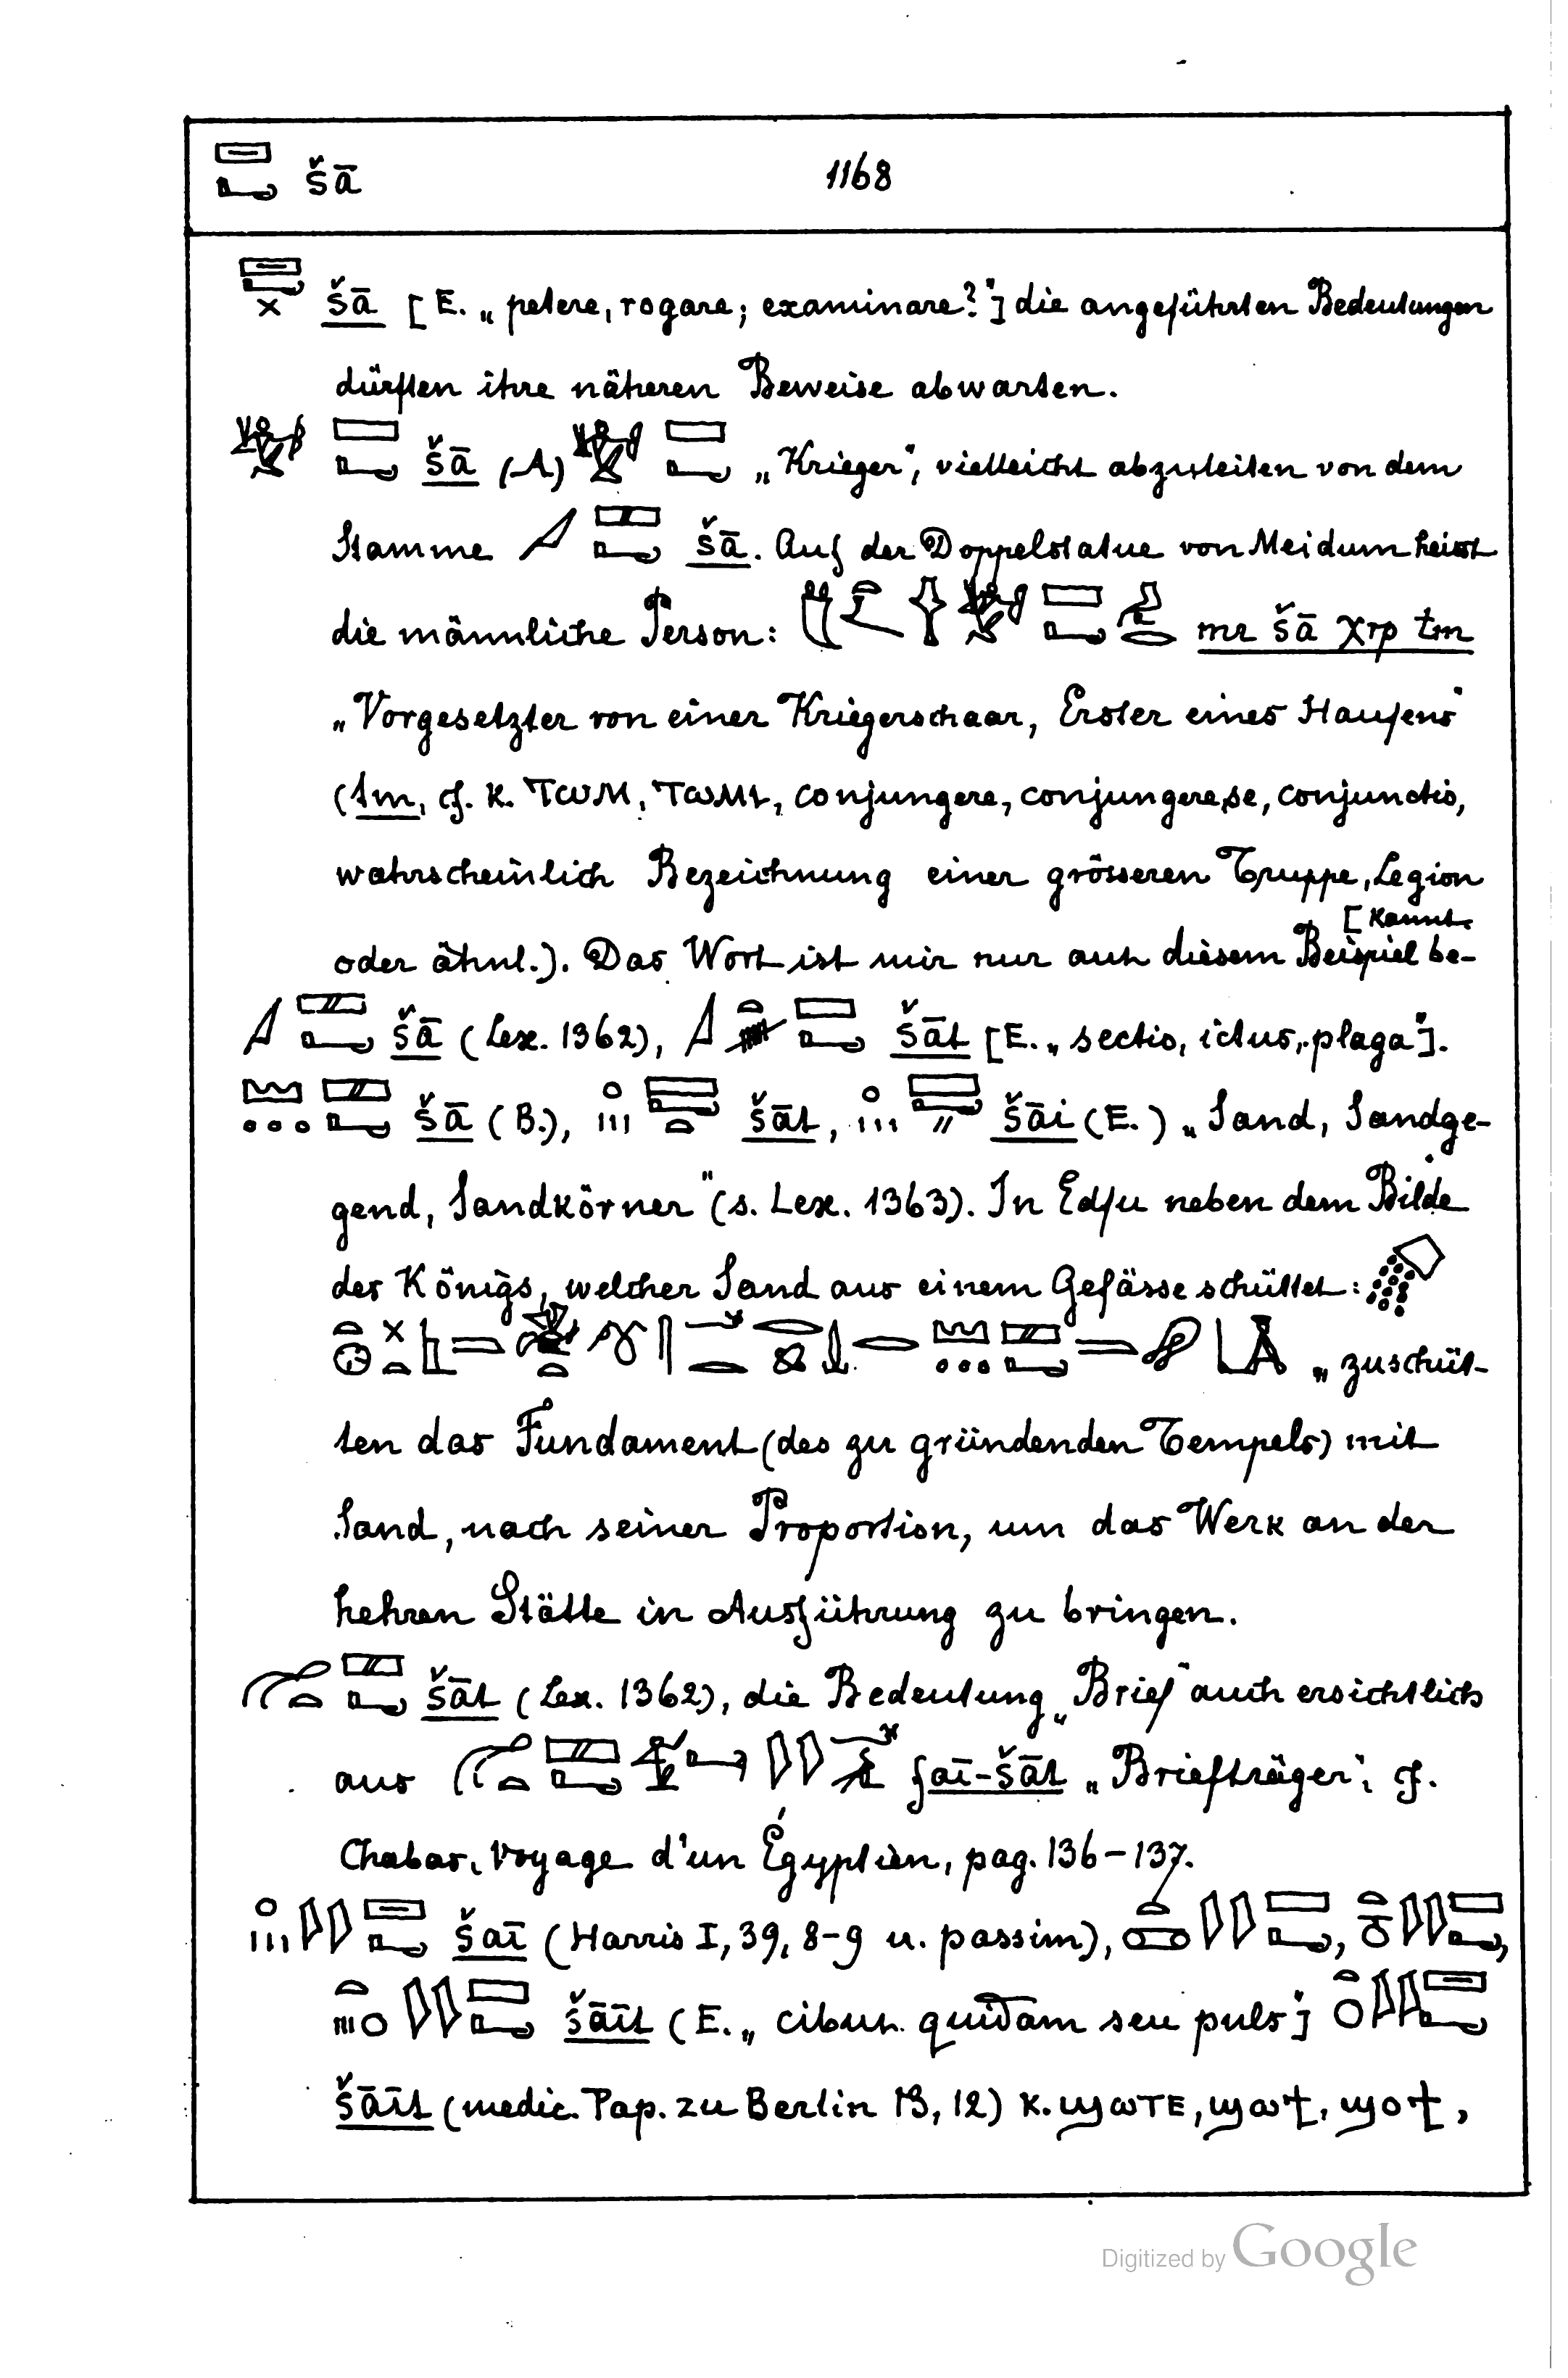 šā 1168
šā [E. „petere, rogare; examinare?“] die angeführten Bedeutungen
dürften ihre näheren Beweise abwarten.
šā (A) „Krieger“, vielleicht abzuleiten von dem
Stamme šā. Auf der Doppelstatue von Meidum heisst
die männliche Person: mr šā χrp tm
„Vorgesetzter von einer Kriegerschaar, Erster eines Haufens“
(tm, cf. K. ⲧⲱⲙ, ⲧⲱⲙⲓ, conjungere, conjungere se, conjunctio,
wahrscheinlich Bezeichnung einer grösseren Truppe, Legion
[kannt.
oder ähnl.). Das Wort ist mir nur aus diesem Beispiel be-
šā (Lex. 1362), šāt [E. „sectio, ictus, plaga“].
šā (B.), šāt, šāi (E.) „Sand, Sandge-
gend, Sandkörner“ (s. Lex. 1363). In Edfu neben dem Bilde
des Königs, welcher Sand aus einem Gefässe schüttet:
„zuschüt-
ten das Fundament (des zu gründenden Tempels) mit
Sand, nach seiner Proportion, um das Werk an der
hehren Stätte in Ausführung zu bringen.
šāt (Lex. 1362), die Bedeutung „Brief“ auch ersichtlich
aus faī-šāt „Briefträger“, cf.
Chabas, Voyage d'un Égyptien, pag. 136–137.
šaī (Harris I, 39, 8–9 u. passim),
šāīt (E. „cibus quidam seu puls“]
šāīt (medic. Pap. zu Berlin 13, 12) K. ϣⲱⲧⲉ, ϣⲱϯ, ϣⲟϯ,
Digitized by Google